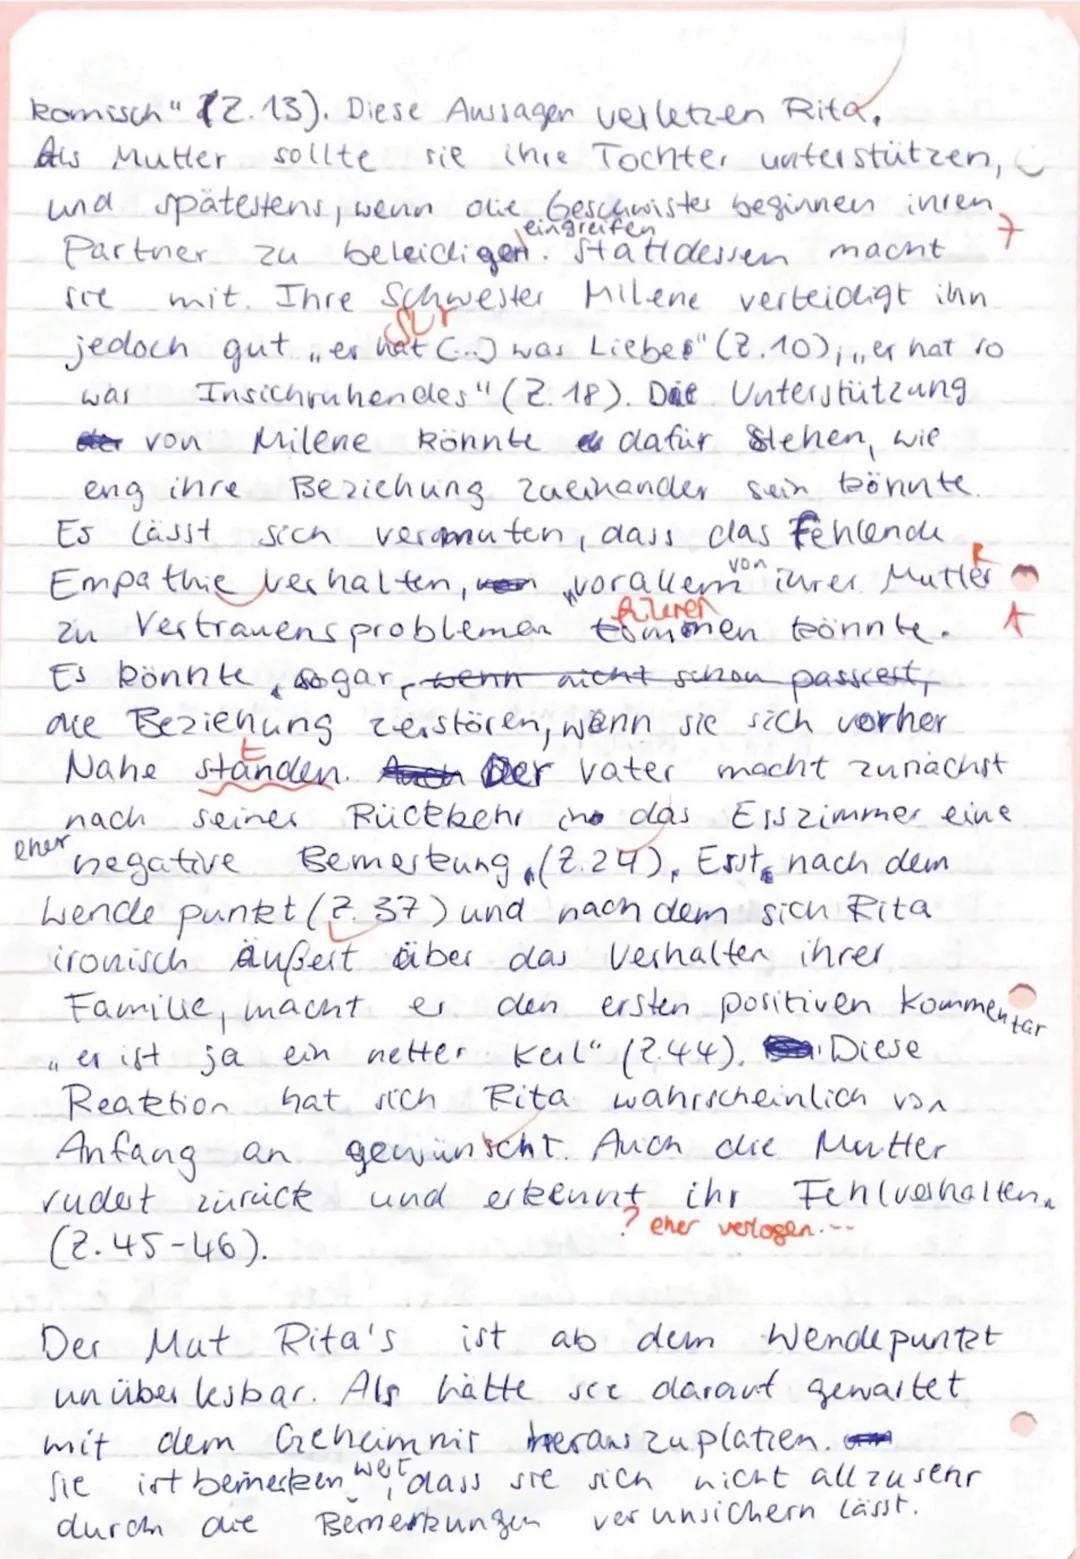 komisch" (Z.13). Diese Aussagen verletzen Rita.
Als Mutter sollte sie ihre Tochter unterstützen,
und spätestens, wenn die Geschwister beginnen ihren
eingreifen
Partner zu beleidigen. Stattdessen macht
sie mit. Ihre Schwester Milene verteidigt ihn
jedoch gut „er hat (...) was Liebes" (Z.10); „er hat so
was Insichruhendes" (Z.18). Die Unterstützung
von Milene könnte dafür stehen, wie
eng ihre Beziehung zueinander sein könnte.
Es lässt sich vermuten, dass das Fehlende
Empathie Verhalten, vorallem von ihrer Mutter R
führen
zu Vertrauensproblemen kommen könnte. A
Es könnte, sogar, wenn nicht schon passiert,
die Beziehung zerstören, wenn sie sich vorher
t
Nahe standen. Der Vater macht zunächst
nach seiner Rückkehr ins das Esszimmer eine
eher negative Bemerkung (Z.24). Erst nach dem
Wendepunkt (Z. 37) und nach dem sich Rita
ironisch äußert über das Verhalten ihrer
Familie, macht er den ersten positiven Kommentar
„er ist ja ein netter Kerl" (Z.44). Diese
Reaktion hat sich Rita wahrscheinlich von
Anfang an gewünscht. Auch die Mutter
rudert zurück und erkennt ihr Fehlverhalten
? eher verlogen...
(Z.45-46).
Der Mut Rita's ist ab dem Wendepunkt
unüberlesbar. Als hätte sie darauf gewartet
mit dem Geheimnis herauszuplatzen.
Sie ist bemerkenswert, dass sie sich nicht allzusehr
durch die Bemerkungen verunsichern lässt.